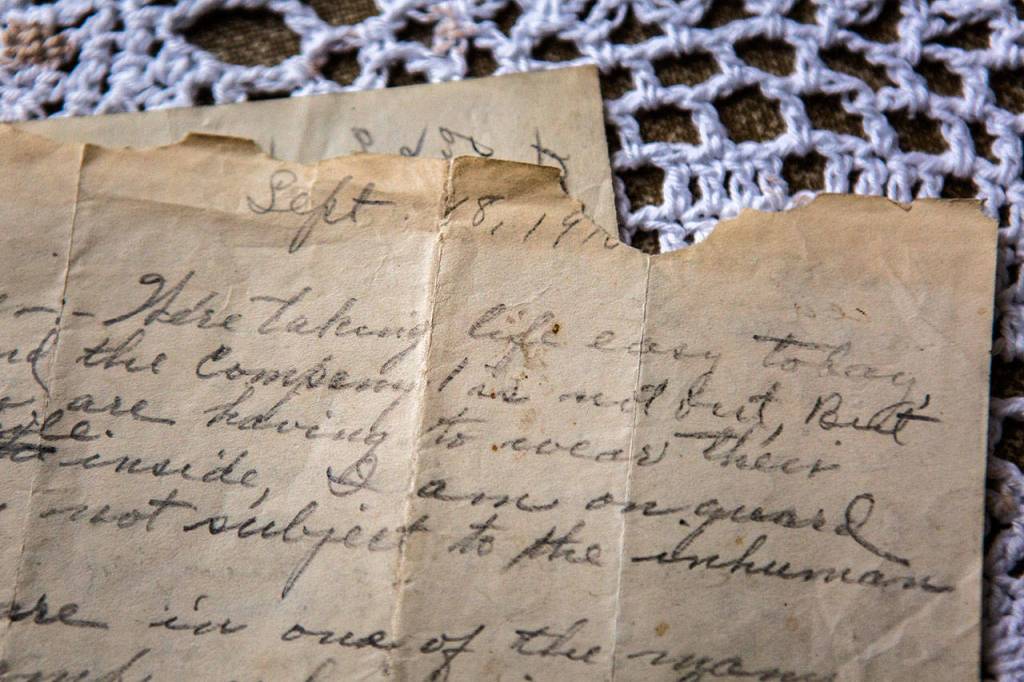 Sept. 18, 191
-- We're taking life easy today,
the Company is not out, But
are having to wear their
inside, I am on guard
not subject to the inhuman
are in one of the many